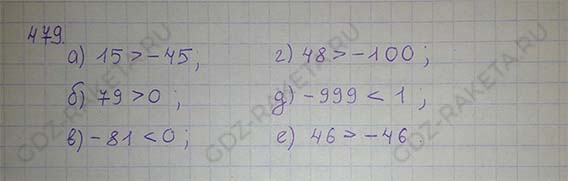 479.
а) 15 > -45; г) 48 > -100;
б) 79 > 0; д) -999 < 1;
в) -81 < 0; е) 46 > -46
GDZ-RAKETA.RU
GDZ-RAKETA.RU
GDZ-RAKETA.RU
GDZ-RAKETA.RU